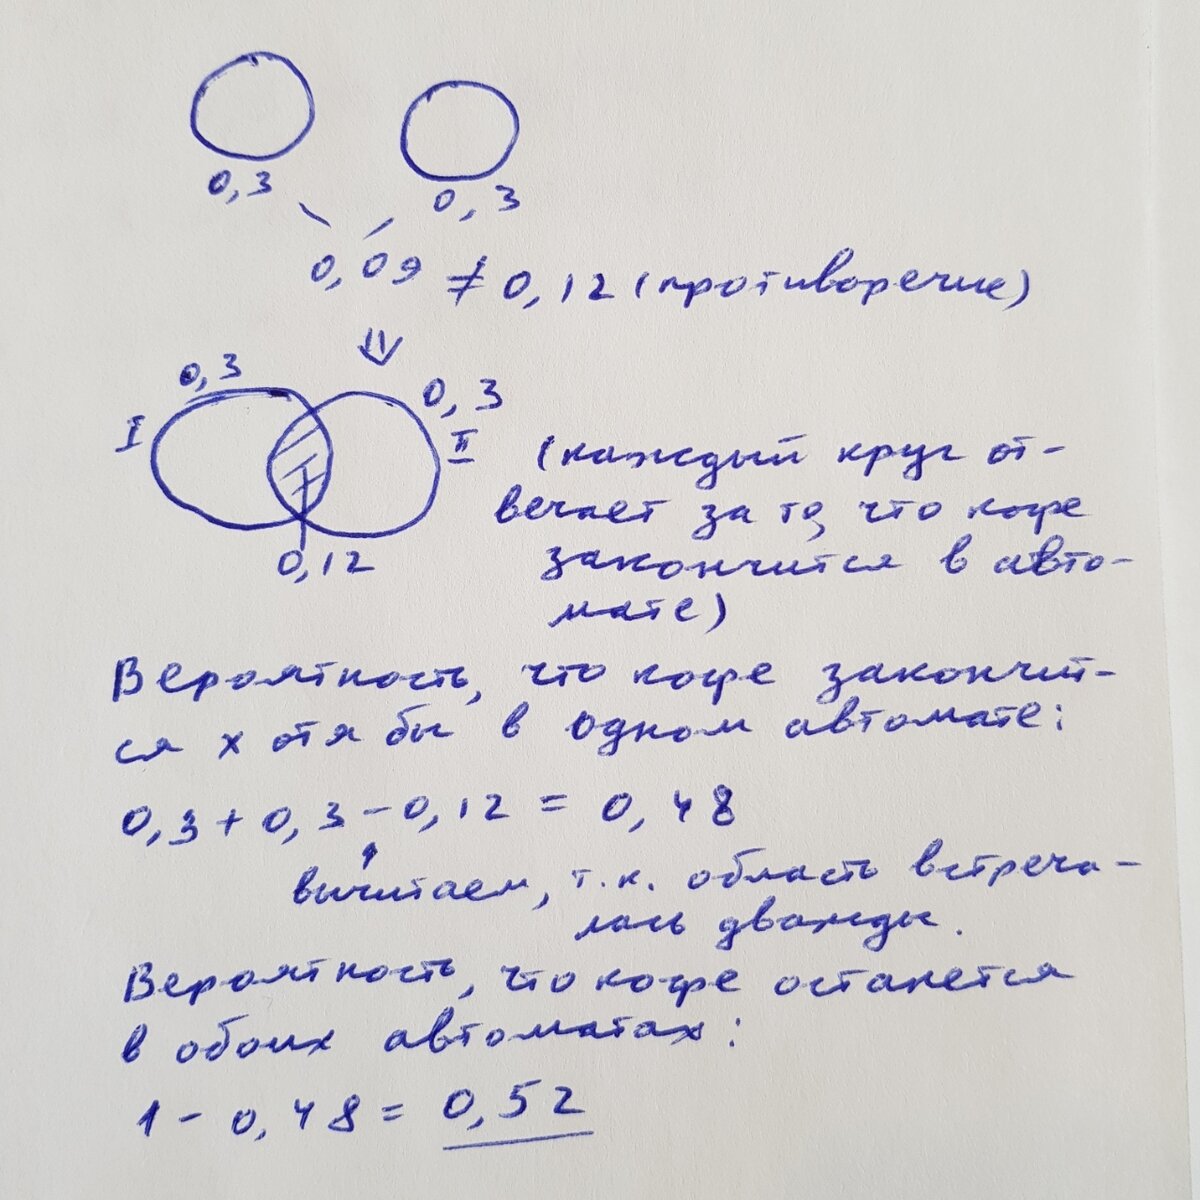 0,3
0,3
0,09 ≠ 0,12 (противоречие)
⇓
0,3
0,3
I
II
0,12
(каждый круг от-
вечает за то, что кофе
закончится в авто-
мате)
Вероятность, что кофе закончит-
ся хотя бы в одном автомате:
0,3 + 0,3 - 0,12 = 0,48
вычитаем, т.к. область встреча-
лась дважды.
Вероятность, что кофе останется
в обоих автоматах:
1 - 0,48 = 0,52